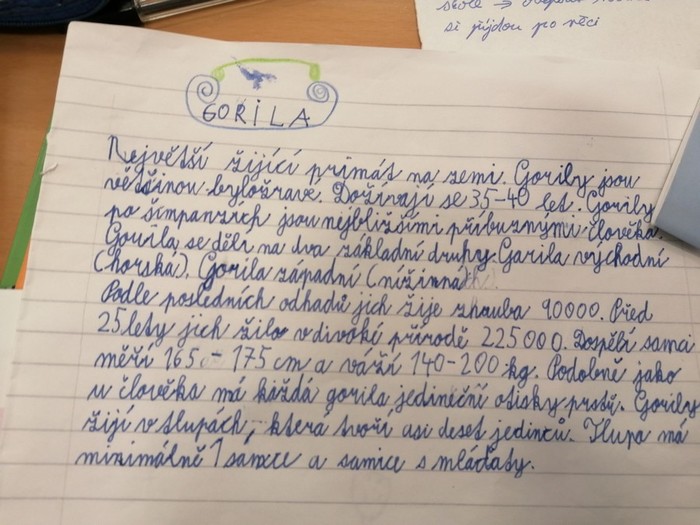 si přijdou po věci
GORILA
Největší žijící primát na zemi. Gorily jsou
většinou býložravé. Dožívají se 35-40 let. Gorily
po šimpanzích jsou nejbližšími příbuznými člověka.
Gorila se dělí na dva základní druhy. Garila východní
(horská). Gorila západní (nížinná).
Podle posledních odhadů jich žije zhruba 90000. Před
25 lety jich žilo v divoké přírodě 225000. Dospělí samci
měří 165 - 175 cm a váží 140-200 kg. Podobně jako
u člověka má každá gorila jedineční otisky prstů. Gorily
žijí v tlupách, ktera tvoří asi deset jedinců. Tlupa má
minimálně 1 samce a samice s mláďaty.